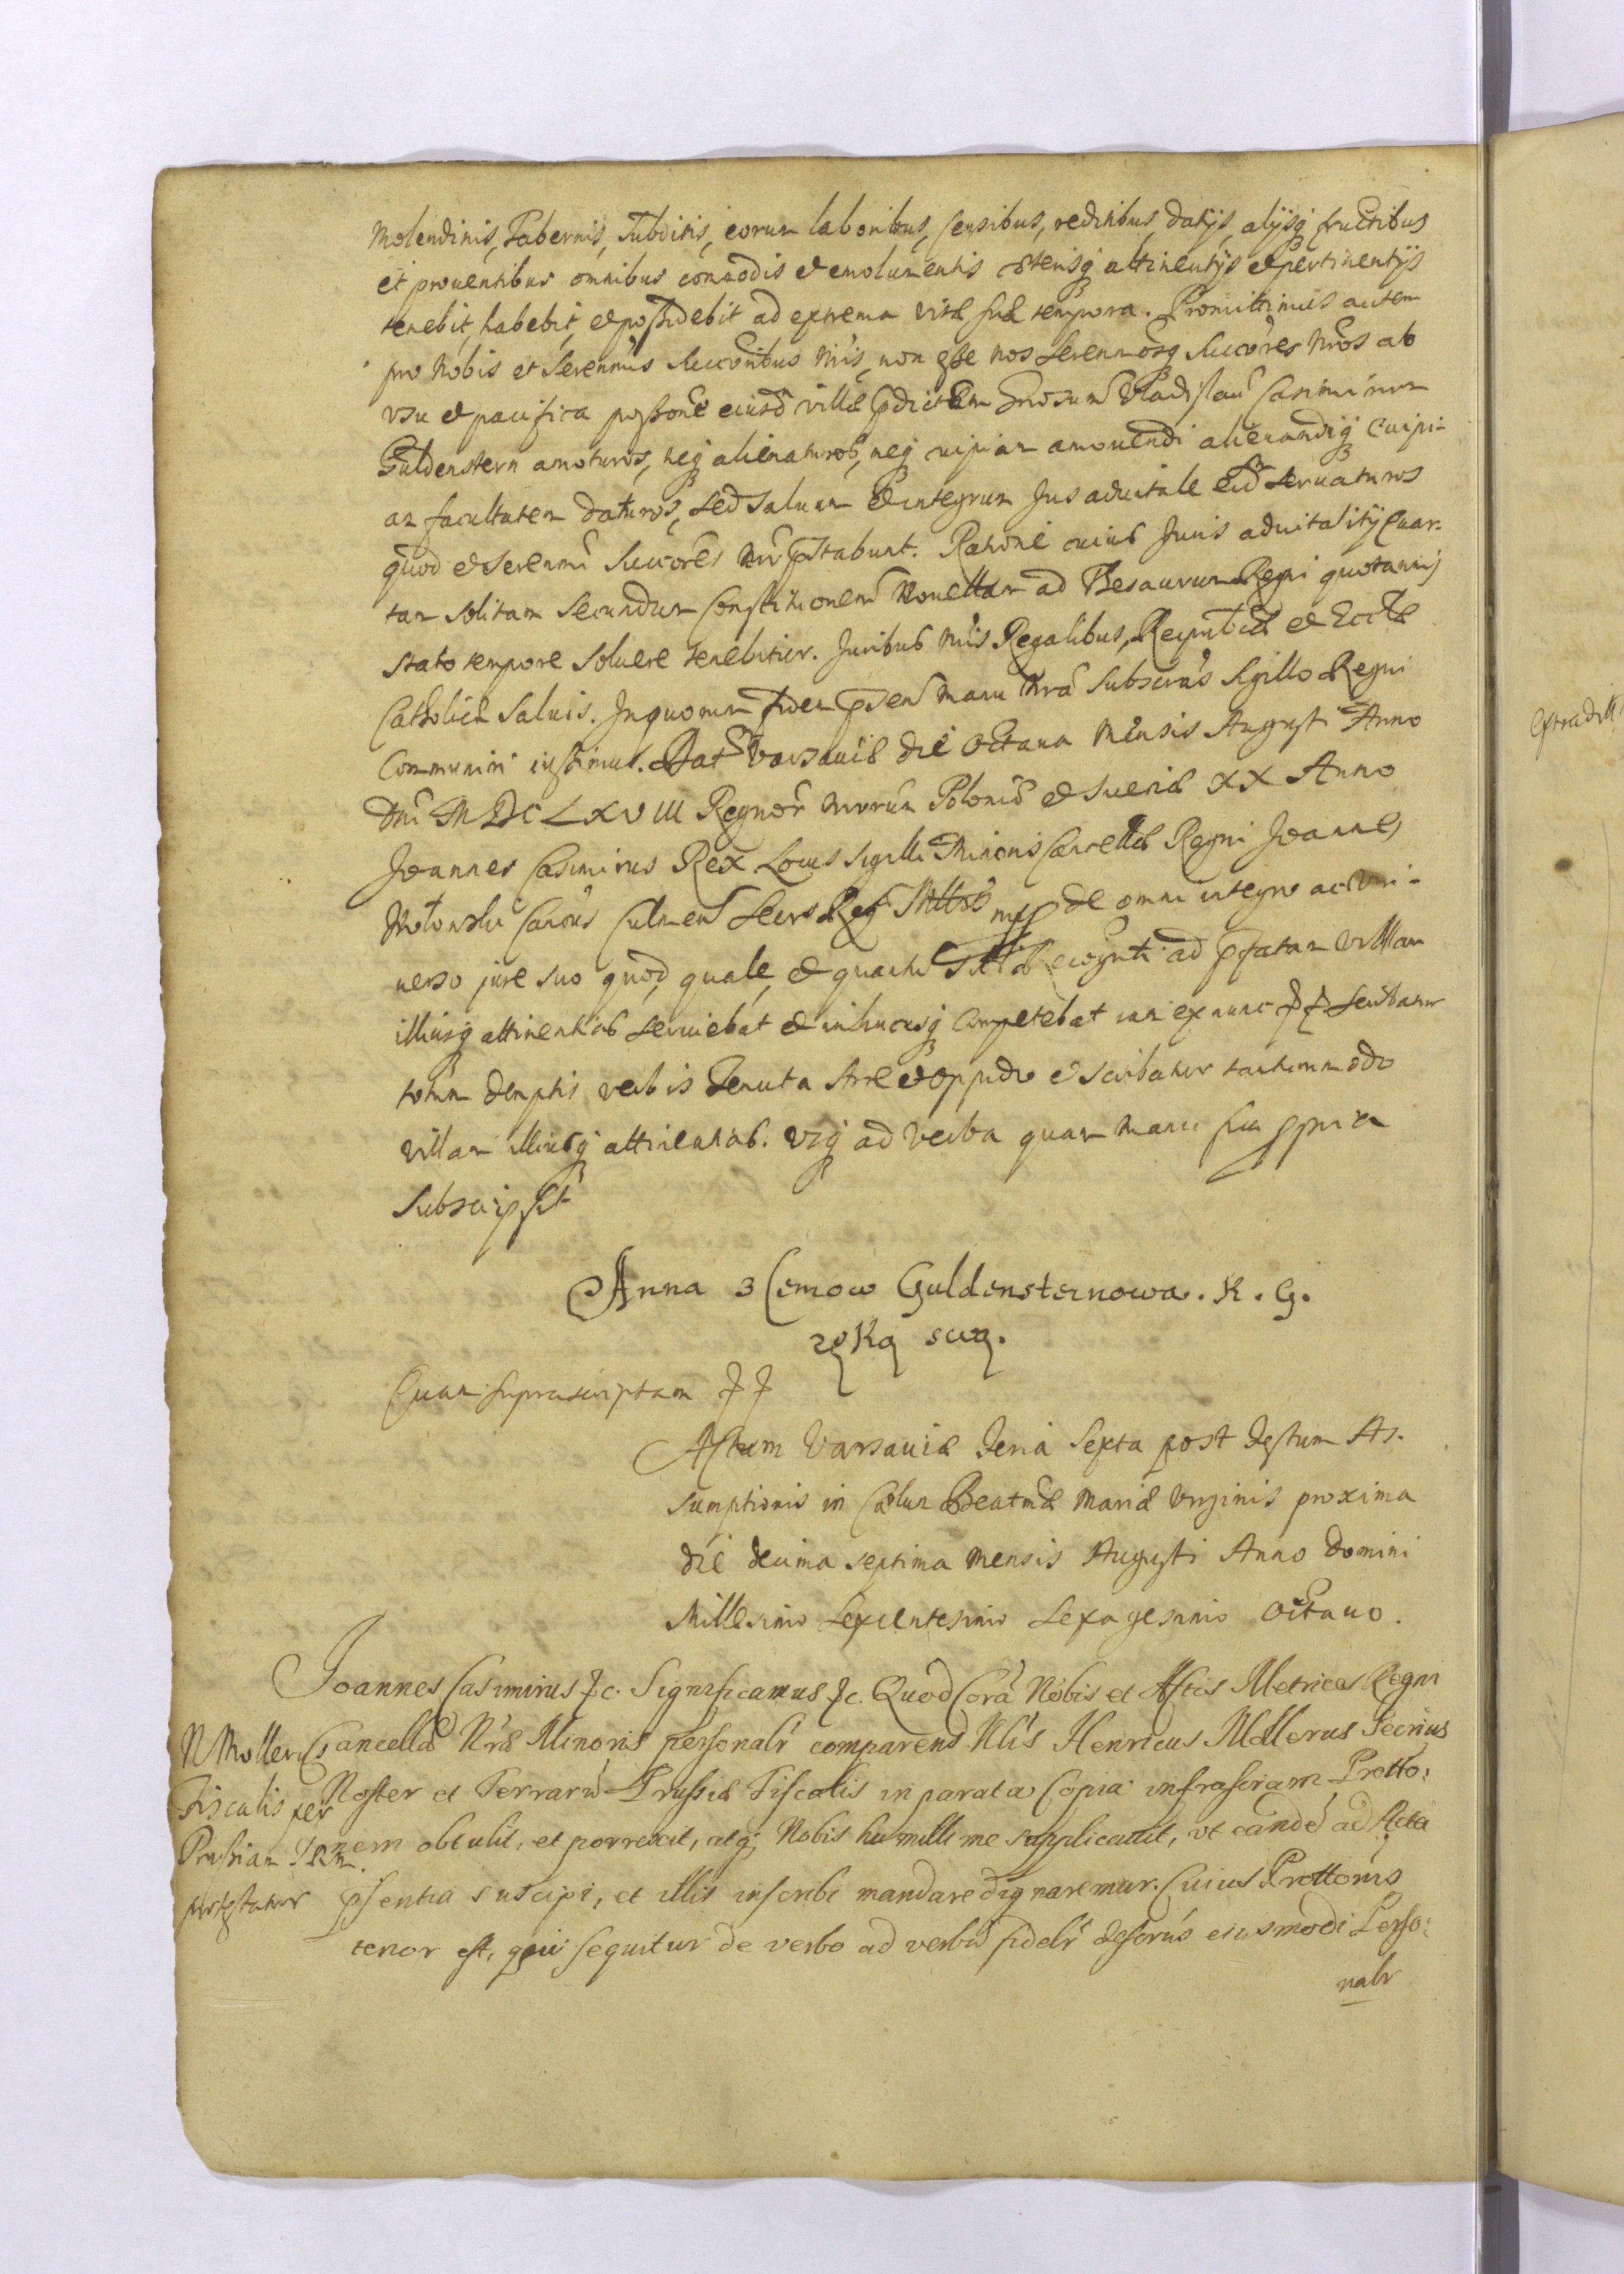 Molendinis, Tabernis, Subditis, eorum laboribus, Censibus, reditibus, datijs, alijsq fructibus
et prouentibus omnibus comodis et emolumentis cæterisq attinentijs et pertinentijs
tenebit, habebit, et possidebit ad extrema vitæ suæ tempora. Promittimus autem
pro Nobis et Serenmis Succoribus Nris, non esse nos Serenmosq Succores Nros ab
vsu et pacifica possone eiusd villæ pdictæ Gnosum Vladislau Casimirum
Guldenstern amoturos, neq alienaturos, neq cuipiam amouendi alienandiq Cuipi-
am facultatem daturos, Sed Saluum et integrum Jus aduitale eid seruaturos
quod et Serenmi Succores Nri pstabunt. Ratione cuius Juris aduitalitij Quar-
tam solitam Secundum Constitutionem Nouellam ad Thesaurum Regni quotannis
stato tempore soluere tenebitur. Juribus Nris Regalibus, Reipublicæ et Ecclæ
Catholicæ Saluis. In quorum fidem psen Manu Nra Subscras Sigillo Regni
Communiri iussimus. Dat Varsauiæ die Octaua Mensis Augusti Anno
Dni M DC LXVIII Regnor Nrorum Poloniæ et Sueciæ XX Anno
Joannes Casimirus Rex Locus sigilli Minoris Cancellæ Regni Joannes
Canons Culmen Secrs Reg Mttis mpp de omni integro ac Vni-
uerso jure suo quod, quale, et quantu ad pfatam Villam
illiusq attinentias seruiebat et in hucusq competebat iam ex nunc Scribatur
totum demptis verbis Tenuta Arce et Oppido et Scribatur tantummodo
Villam illiusq attinentias. Vsq ad Verba quam Manu sua ppria
Subscripsit
Anna z Cemow Guldensternowa. K. G.
ręką swą.
Quam suprascriptam
Actum Varsauiæ Feria Sexta post Festum As-
sumptionis in Cælum Beatmæ Mariæ Virginis proxima
die decima septima Mensis Augusti Anno Domini
Millesimo Sexcentesimo Sexagesimo Octauo.
Joannes Casimirus &c. Significamus &c. Quod Cora Nobis et Actis Metrices Regni
Cancellæ Nræ Minoris personalr comparens Nlis Henricus Mollerus Secrius
Noster et Terraru Prussiæ Fiscalis in parata Copia infrascriam Protto:
nem obtulit, et porrexit, atq Nobis humillime supplicauit, vt eande ad Acta
psentia suscipi, et illis inscribi mandare dignaremur. Cuius Prottonis
tenor est, qui sequitur de verbo ad verbu fidelr descrus eiusmodi Perso:
nalr
N Moller
Fiscalis per
Prussiam
protestatur